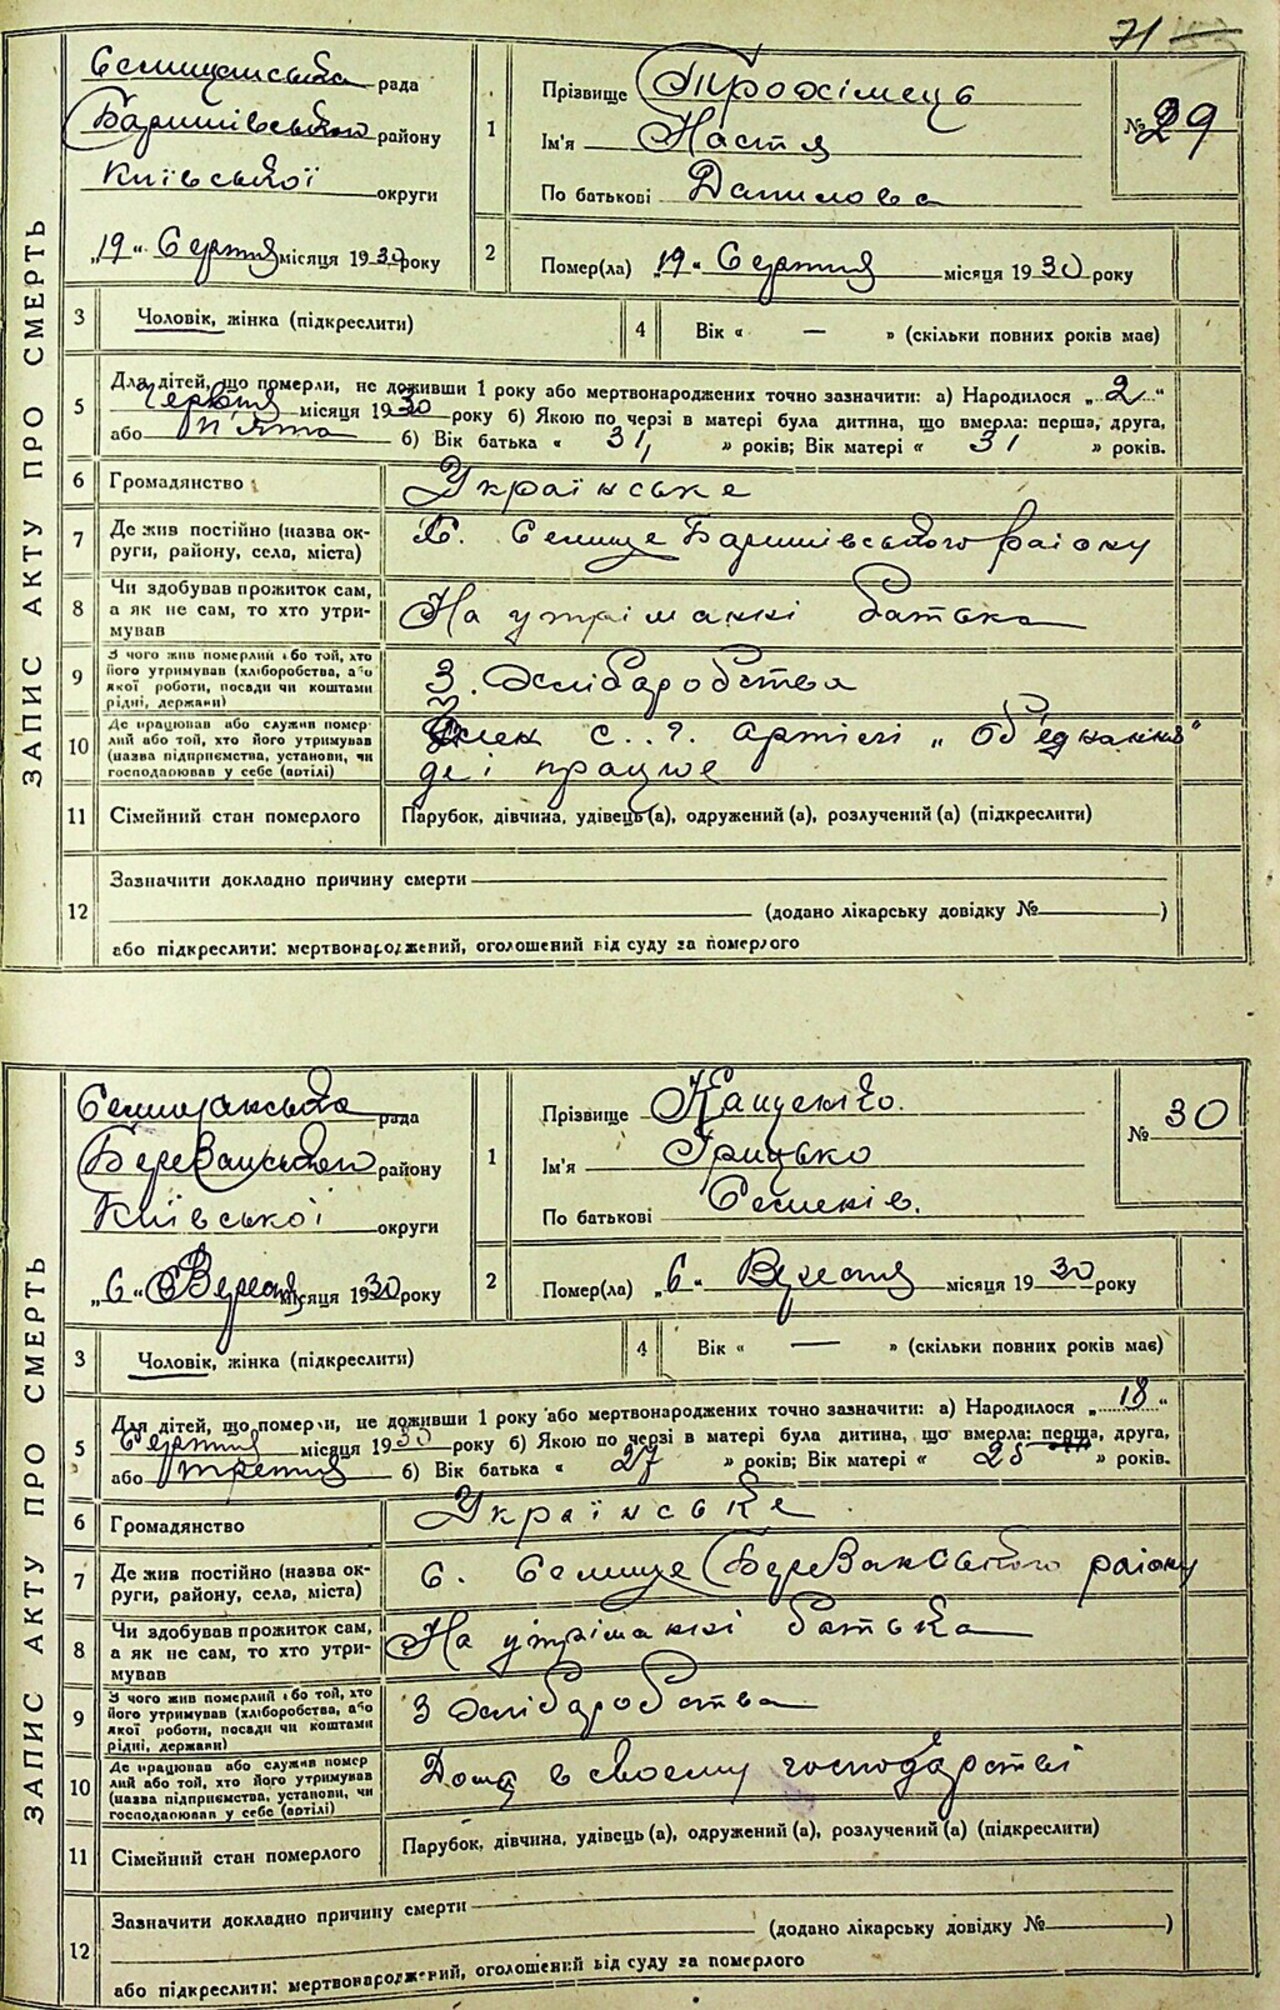 71
ЗАПИС АКТУ ПРО СМЕРТЬ
Селищанська рада
Баришівського району
Київської округи
„19“ Серпня місяця 1930 року
1
Прізвище Трохімець
Ім'я Настя
По батькові Данилова
№ 29
2
Помер(ла) „19“ Серпня місяця 1930 року
3
Чоловік, жінка (підкреслити)
4
Вік « — » (скільки повних років має)
5
Для дітей, що померли, не доживши 1 року або мертвонароджених точно зазначити: а) Народилося „2“
Червня місяця 1930 року б) Якою по черзі в матері була дитина, що вмерла: перша, друга,
або п'ята б) Вік батька « 31, » років; Вік матері « 31 » років.
6
Громадянство
Українське
7
Де жив постійно (назва округи, району, села, міста)
С. Селище Баришівського раіону
8
Чи здобував прожиток сам,
а як не сам, то хто утримував
На утріманні батька
9
З чого жив померлий або той, хто
його утримував (хліборобства, або
якої роботи, посади чи коштами
рідні, держави)
З. Хлібаробства
10
Де працював або служив померлий або той, хто його утримував
(назва підприємства, установи, чи
господарював у себе (артілі)
Член с..г. артілі „Об'єднання“
де і працює
11
Сімейний стан померлого
Парубок, дівчина, удівець(а), одружений(а), розлучений(а) (підкреслити)
12
Зазначити докладно причину смерти
(додано лікарську довідку № )
або підкреслити: мертвонароджений, оголошений від суду за померлого
ЗАПИС АКТУ ПРО СМЕРТЬ
Селищанська рада
Березанського району
Київської округи
„6“ Вересня місяця 1930 року
1
Прізвище
Ім'я Грицько
По батькові Семенів.
№ 30
2
Помер(ла) „6“ Вересня місяця 1930 року
3
Чоловік, жінка (підкреслити)
4
Вік « — » (скільки повних років має)
5
Для дітей, що померли, не доживши 1 року або мертвонароджених точно зазначити: а) Народилося „18“
Серпня місяця 1930 року б) Якою по черзі в матері була дитина, що вмерла: перша, друга,
або третя б) Вік батька « 27 » років; Вік матері « 25 » років.
6
Громадянство
Українське
7
Де жив постійно (назва округи, району, села, міста)
С. Селище Березанського раіону
8
Чи здобував прожиток сам,
а як не сам, то хто утримував
На утріманні батька
9
З чого жив померлий або той, хто
його утримував (хліборобства, або
якої роботи, посади чи коштами
рідні, держави)
З хлібаробства
10
Де працював або служив померлий або той, хто його утримував
(назва підприємства, установи, чи
господарював у себе (артілі)
Дома в своему господарстві
11
Сімейний стан померлого
Парубок, дівчина, удівець(а), одружений(а), розлучений(а) (підкреслити)
12
Зазначити докладно причину смерти
(додано лікарську довідку № )
або підкреслити: мертвонароджений, оголошений від суду за померлого